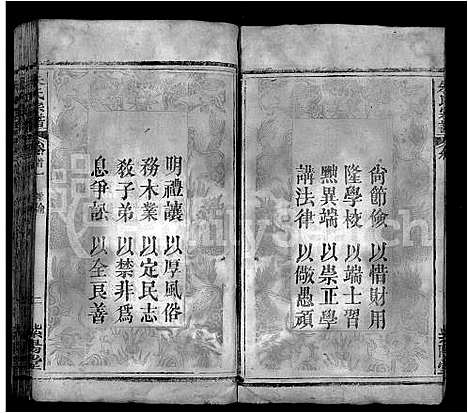 尙節儉以惜財用
隆學校以端士習
黜異端以崇正學
講法律以儆愚頑
明禮讓以厚風俗
務木業以定民志
教子弟以禁非爲
息爭訟以全良善
FamilySearch